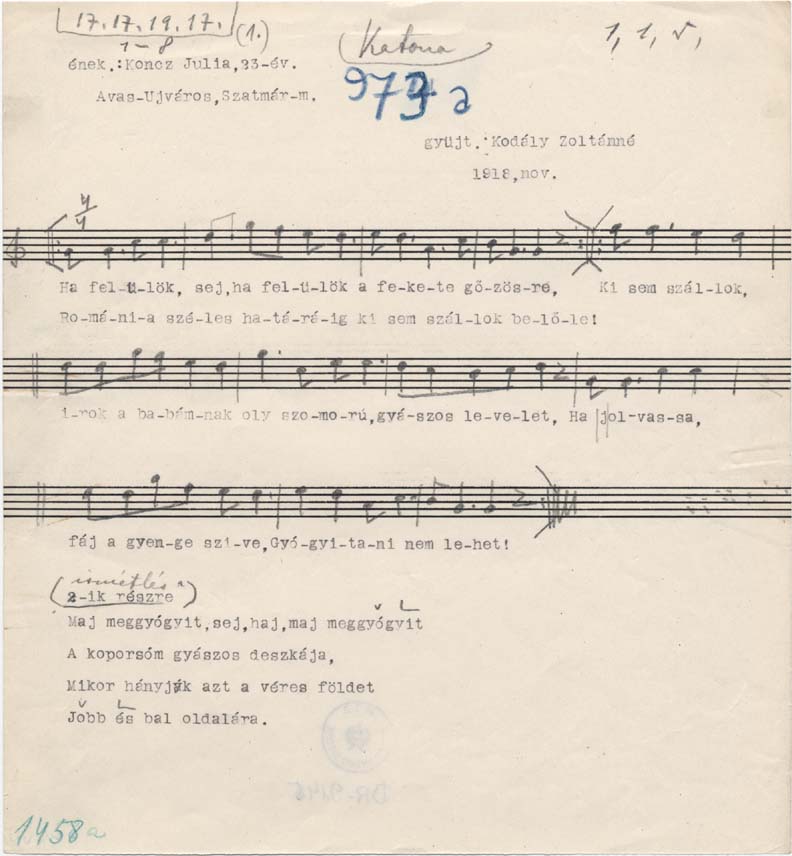 17. 17. 19. 17. (1.) Katona 1, 1, 5,
1-8
ének.:Koncz Julia,23-év.
Avas-Ujváros,Szatmár-m.
gyüjt.:Kodály Zoltánné
1918,nov.
4/4
Ha fel-ü-lök, sej,ha fel-ü-lök a fe-ke-te gő-zös-re, Ki sem szál-lok,
Ro-má-ni-a szé-les ha-tá-rá-ig ki sem szál-lok be-lő-le!
i-rok a ba-bám-nak oly szo-mo-rú,gyá-szos le-ve-let, Ha jol-vas-sa,
fáj a gyen-ge szi-ve,Gyó-gyi-ta-ni nem le-het!
ismétlés a
2-ik részre
Maj meggyógyit,sej,haj,maj meggyógyit
A koporsóm gyászos deszkája,
Mikor hányják azt a véres földet
Jobb és bal oldalára.
1458a